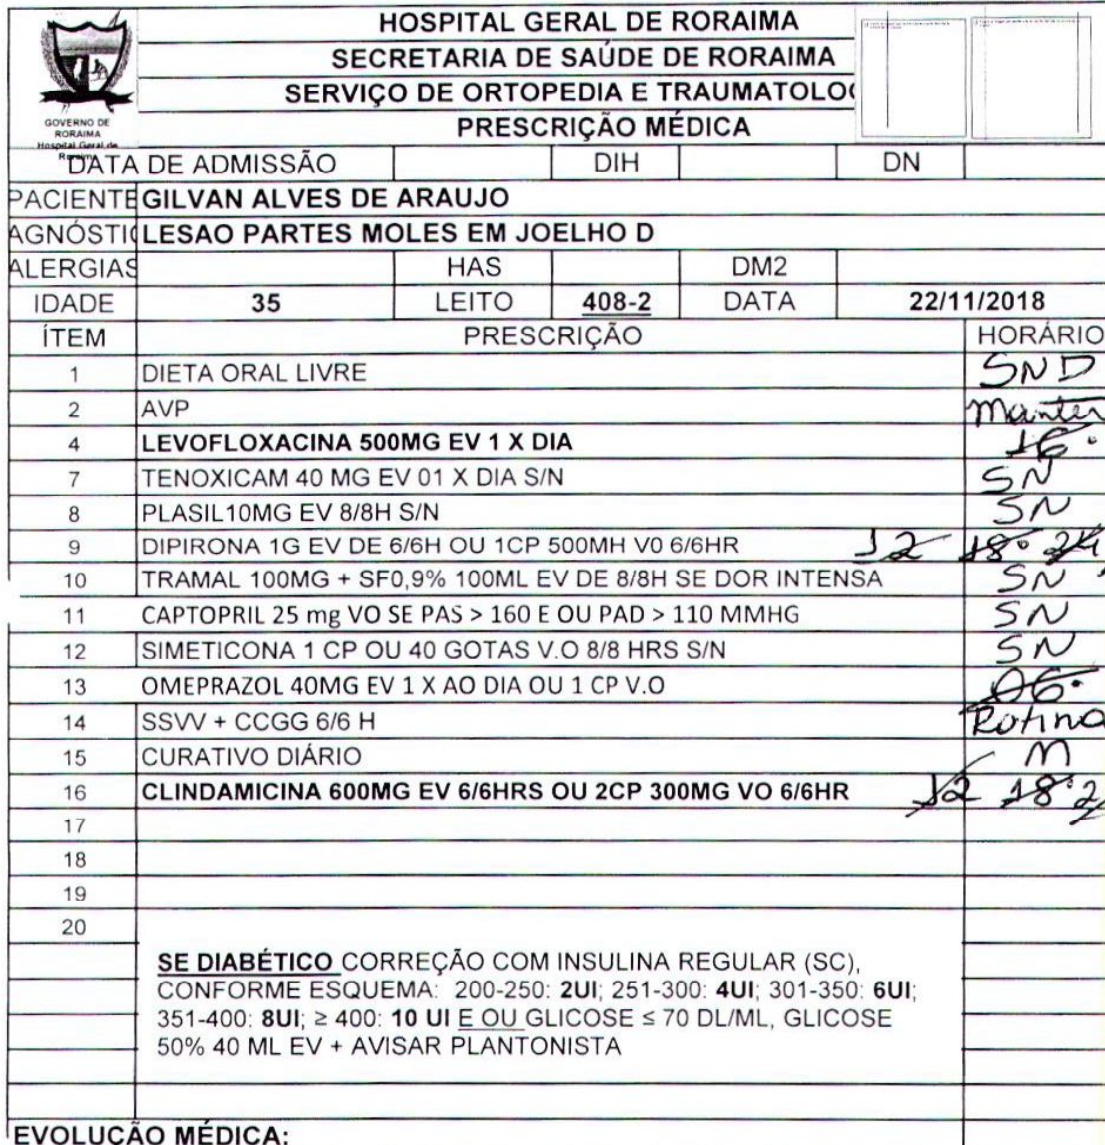 HOSPITAL GERAL DE RORAIMA
SECRETARIA DE SAÚDE DE RORAIMA
SERVIÇO DE ORTOPEDIA E TRAUMATOLO
PRESCRIÇÃO MÉDICA
GOVERNO DE
RORAIMA
Hospital Geral de
Roraima
DATA DE ADMISSÃO DIH DN
PACIENTE GILVAN ALVES DE ARAUJO
AGNÓSTI LESAO PARTES MOLES EM JOELHO D
ALERGIAS HAS DM2
IDADE 35 LEITO 408-2 DATA 22/11/2018
ÍTEM PRESCRIÇÃO HORÁRIO
1 DIETA ORAL LIVRE SND
2 AVP Manter
4 LEVOFLOXACINA 500MG EV 1 X DIA 16
7 TENOXICAM 40 MG EV 01 X DIA S/N SN
8 PLASIL10MG EV 8/8H S/N SN
9 DIPIRONA 1G EV DE 6/6H OU 1CP 500MH V0 6/6HR 12 18 24
10 TRAMAL 100MG + SF0,9% 100ML EV DE 8/8H SE DOR INTENSA SN
11 CAPTOPRIL 25 mg VO SE PAS > 160 E OU PAD > 110 MMHG SN
12 SIMETICONA 1 CP OU 40 GOTAS V.O 8/8 HRS S/N SN
13 OMEPRAZOL 40MG EV 1 X AO DIA OU 1 CP V.O 06
14 SSVV + CCGG 6/6 H Rotina
15 CURATIVO DIÁRIO M
16 CLINDAMICINA 600MG EV 6/6HRS OU 2CP 300MG VO 6/6HR 12 18 2
17
18
19
20
SE DIABÉTICO CORREÇÃO COM INSULINA REGULAR (SC),
CONFORME ESQUEMA: 200-250: 2UI; 251-300: 4UI; 301-350: 6UI;
351-400: 8UI; ≥ 400: 10 UI E OU GLICOSE ≤ 70 DL/ML, GLICOSE
50% 40 ML EV + AVISAR PLANTONISTA
EVOLUÇÃO MÉDICA: